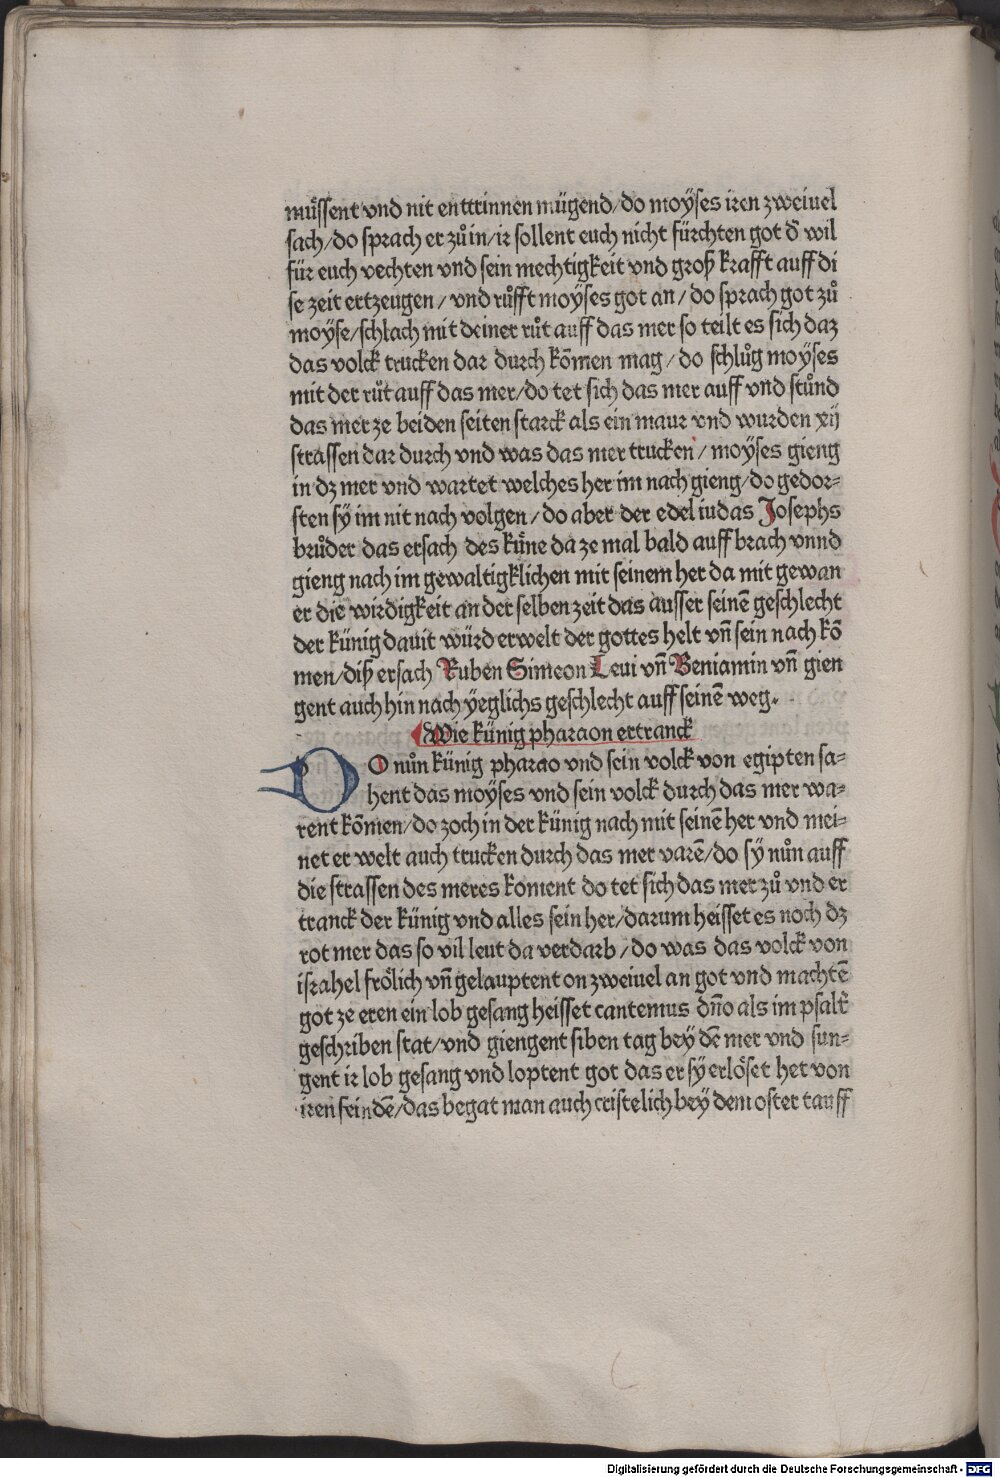 muͤssent vnd nit enttrinnen mügend/do moyses iren zweiuel
sach/do sprach er zuͦ in/ir sollent euch nicht fürchten got dˀ wil
für euch vechten vnd sein mechtigkeit vnd groß krafft auff di
se zeit ertzeugen/vnd ruͦfft moyses got an/do sprach got zuͦ
moyse/schlach mit deiner ruͦt auff das mer so teilt es sich daz
das volck trucken dar durch kōmen mag/do schluͦg moyses
mit der ruͦt auff das mer/do tet sich das mer auff vnd stuͦnd
das mer ze beiden seiten starck als ein maur vnd wurden xij
strassen dar durch vnd was das mer trucken/moyses gieng
in dz mer vnd wartet welches her im nach gieng/do gedor-
sten sy im nit nach volgen/do aber der edel iudas Josephs
bruͦder das ersach des kuͤne da ze mal bald auff brach vnnd
gieng nach im gewaltigklichen mit seinem her da mit gewan
er die wirdigkeit an der selben zeit das ausser seinē geschlecht
der künig dauit würd erwelt der gottes helt vn̄ sein nach kō
men/diß ersach Ruben Simeon Leui vn̄ Beniamin vn̄ gien
gent auch hin nach yeglichs geschlecht auff seinē weg.
Wie künig pharaon ertranck
DO nuͦn künig pharao vnd sein volck von egipten sa-
hent das moyses vnd sein volck durch das mer wa-
rent kōmen/do zoch in der künig nach mit seinē her vnd mei-
net er welt auch trucken durch das mer varē/do sy nuͦn auff
die strassen des meres koment do tet sich das mer zuͦ vnd er
tranck der künig vnd alles sein her/darum heisset es noch dz
rot mer das so vil leut da verdarb/do was das volck von
israhel froͤlich vn̄ gelauptent on zweiuel an got vnd machtē
got ze eren ein lob gesang heisset cantemus dn̄o als im psaltˀ
geschriben stat/vnd giengent siben tag bey dē mer vnd sun-
gent ir lob gesang vnd loptent got das er sy erloͤset het von
iren feindē/das begat man auch cristelich bey dem oster tauff
Digitalisierung gefördert durch die Deutsche Forschungsgemeinschaft - DFG